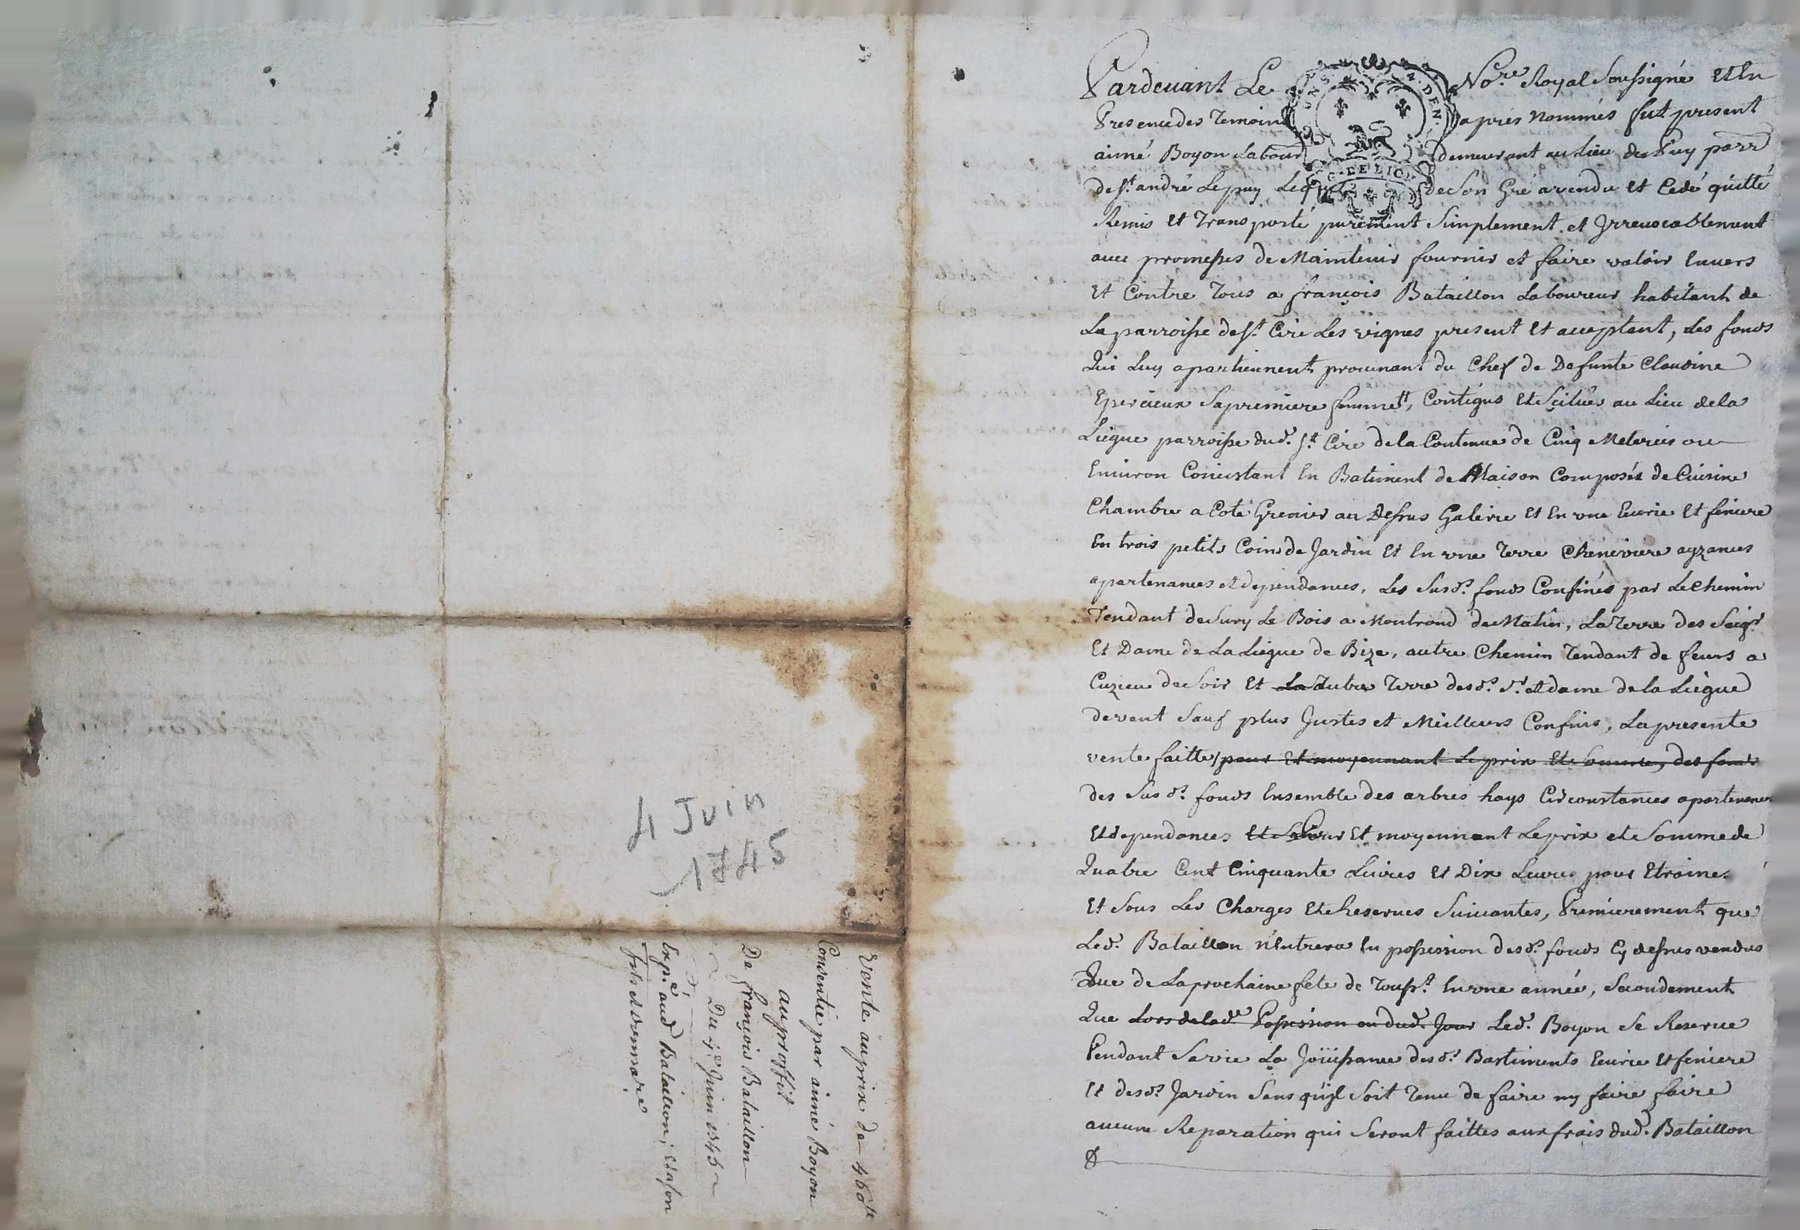 4 Juin
1745
Vente au prix de 460lt
Consentie par aimé Boyon
au proffit
De françois Bataillon
Du 4e Juin 1745
Exp.é aud Bataillon
Pardevant Le No.re Royal Soussigné Et En
Presence des Temoins apres nommés fut present
aimé Boyon Labour demeurant au Lieu du Puy parr
de St. andré Le puy Lequel de Son Gré a vendu Et Cedé quitté
Remis Et Transporté purement Simplement et Irrevocablement
avec promesses de Maintenir fournir et faire valoir Envers
Et Contre Tous a françois Bataillon Laboureur habitant de
La parroisse de St. Cire Les vignes present Et acceptant, Les fonds
Qui Luy apartiennent provenant du Chef de Defunte Claudine
Epercieux Sa premiere femme, Contigus Et Scitués au Lieu de la
Liegue parroisse dud. St. Cire de la Contenue de Cinq Meterées ou
Environ Concistant En Batiment de Maison Composés de Cuisine
Chambre a Coté Grenier au Dessus Galerie Et En une Ecurie Et feniere
En trois petits Coins de Jardin Et En une Terre Cheneviere ayzances
apartenances et dependances, Les Susd.s fonds Confinés par Le Chemin
Tendant de Sury Le Bois a Montrond de Matin, La Terre des Seigr
Et Dame de La Liegue de Bize, autre Chemin Tendant de feurs a
Cuzieu de Soir Et La autre Terre desd.s Sr. et dame de la Liegue
de vent Sauf plus Justes et Meilleurs Confins, La presente
vente faitte pour Et moyennant Le prix Et Somme des fonds
des Susd.s fonds Ensemble des arbres hays Circonstances apartenances
Et dependances Pour Et moyennant Le prix et Somme de
Quatre Cent Cinquante Livres Et Dix Livres pour Etraines
Et Sous Les Charges Et Reserves Suivantes, Premierement que
Led. Bataillon n'Entrera En possession desd.s fonds Cy dessus vendus
Que de La prochaine fete de Touss.t En une année, Secondement
Que Lors de lad.e Possession oudud. Jour Led. Boyon Se Reserve
Pendant Sa vie La Joüissance desd.s Bastiments Ecurie Et feniere
Et desd.s Jardin Sans qu'il Soit Tenu de faire ny faire faire
aucune Reparation qui Seront faittes aux frais dud. Bataillon